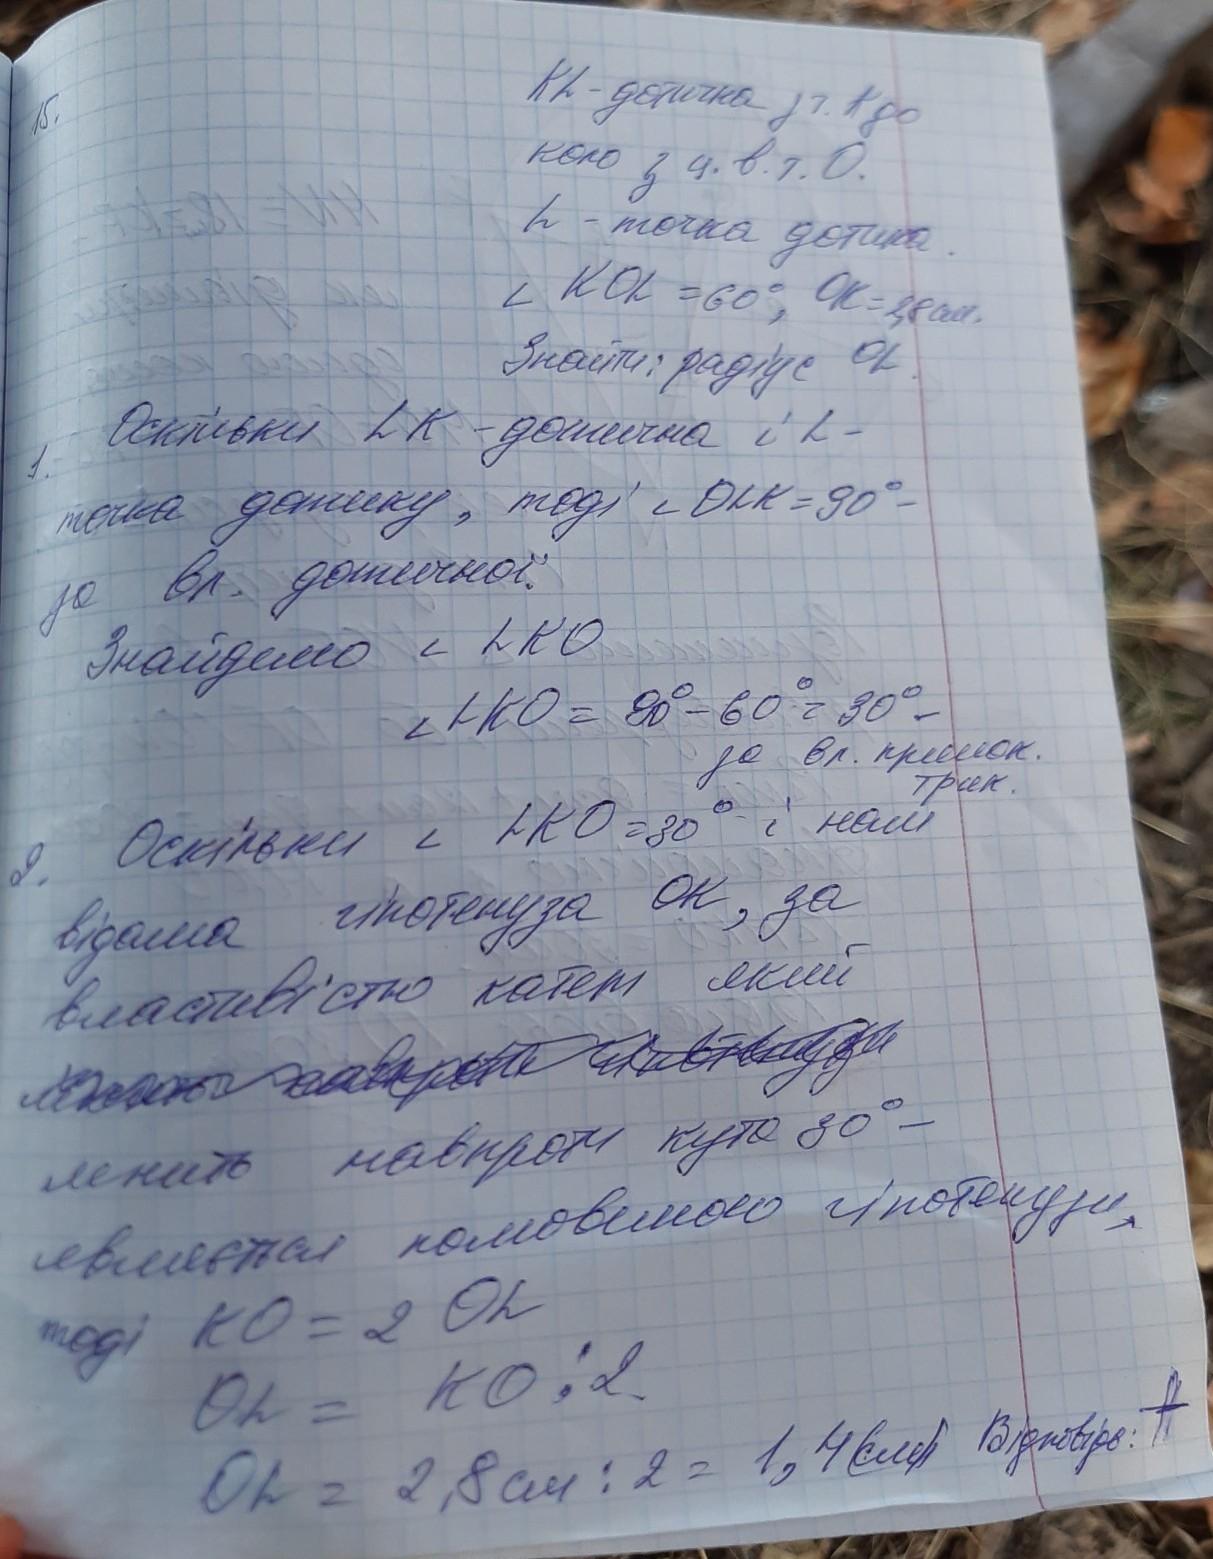 15.
KL - дотична з т. К до
коло з ц. в. т. О.
L - точка дотика.
∠ KOL = 60°, OK = 2,8 см.
Знайти: радіус OL.
1. Оскільки LK - дотична і L -
точка дотику, тоді ∠ OLK = 90° -
за вл. дотичної.
Знайдемо ∠ LKO
∠ LKO = 90° - 60° = 30° -
за вл. прямок.
трик.
2. Оскільки ∠ LKO = 30° і нам
відома гіпотенуза OK, за
властивістю катет який
лежить навпроти кута 30° -
являється половиною гіпотенузи,
тоді KO = 2 OL
OL = KO : 2
OL = 2,8 см : 2 = 1,4 (см) Відповідь: А